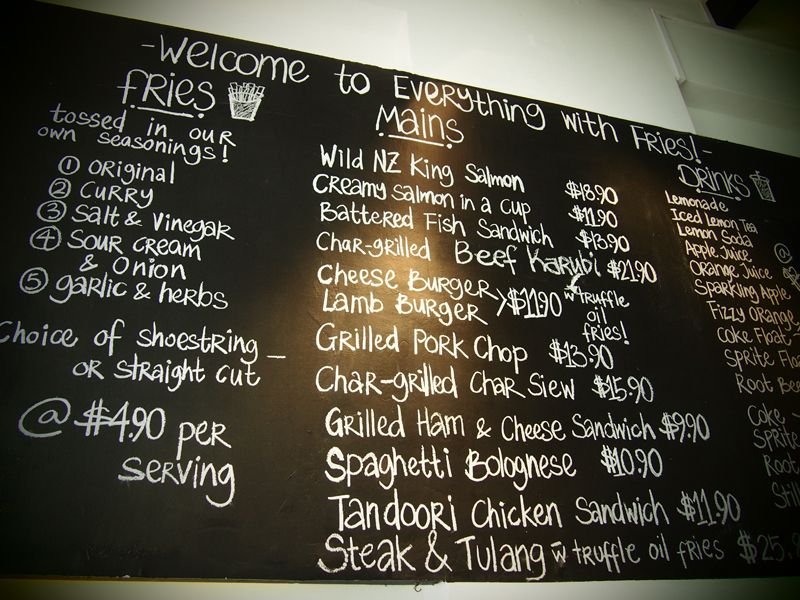 -Welcome to Everything with Fries!-
FRIES
tossed in our
own seasonings!
① Original
② Curry
③ Salt & Vinegar
④ Sour Cream
& Onion
⑤ garlic & herbs
Choice of shoestring
or straight cut
@ $4.90 per
serving
Mains
Wild NZ King Salmon $18.90
Creamy Salmon in a cup $11.90
Battered Fish Sandwich $13.90
Char-grilled Beef Karubi $21.90
w truffle
oil
fries!
Cheese Burger
Lamb Burger > $11.90
Grilled Pork Chop $13.90
Char-grilled Char Siew $15.90
Grilled Ham & Cheese Sandwich $9.90
Spaghetti Bolognese $10.90
Tandoori Chicken Sandwich $11.90
Steak & Tulang w truffle oil fries $25.
DRINKS
Lemonade
Iced Lemon Tea
Lemon Soda
Apple Juice @
Orange Juice
Sparkling Apple
Fizzy Orange
Coke Float
Sprite Floa
Root Bee
Coke
Sprite
Root
Still